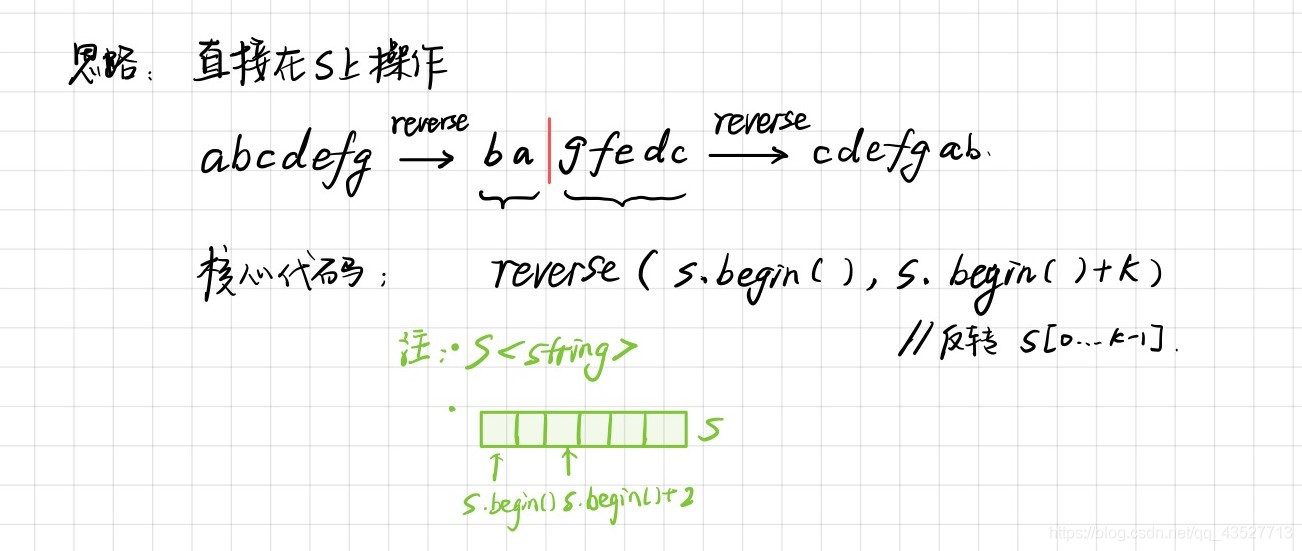 思路: 直接在S上操作
abcdefg → reverse ba|gfedc → reverse cdefgab.
核心代码: reverse(s.begin(), s.begin()+k)
//反转 S[0...k-1].
注:• S<string>
• S
s.begin() s.begin()+2
https://blog.csdn.net/qq_43527713